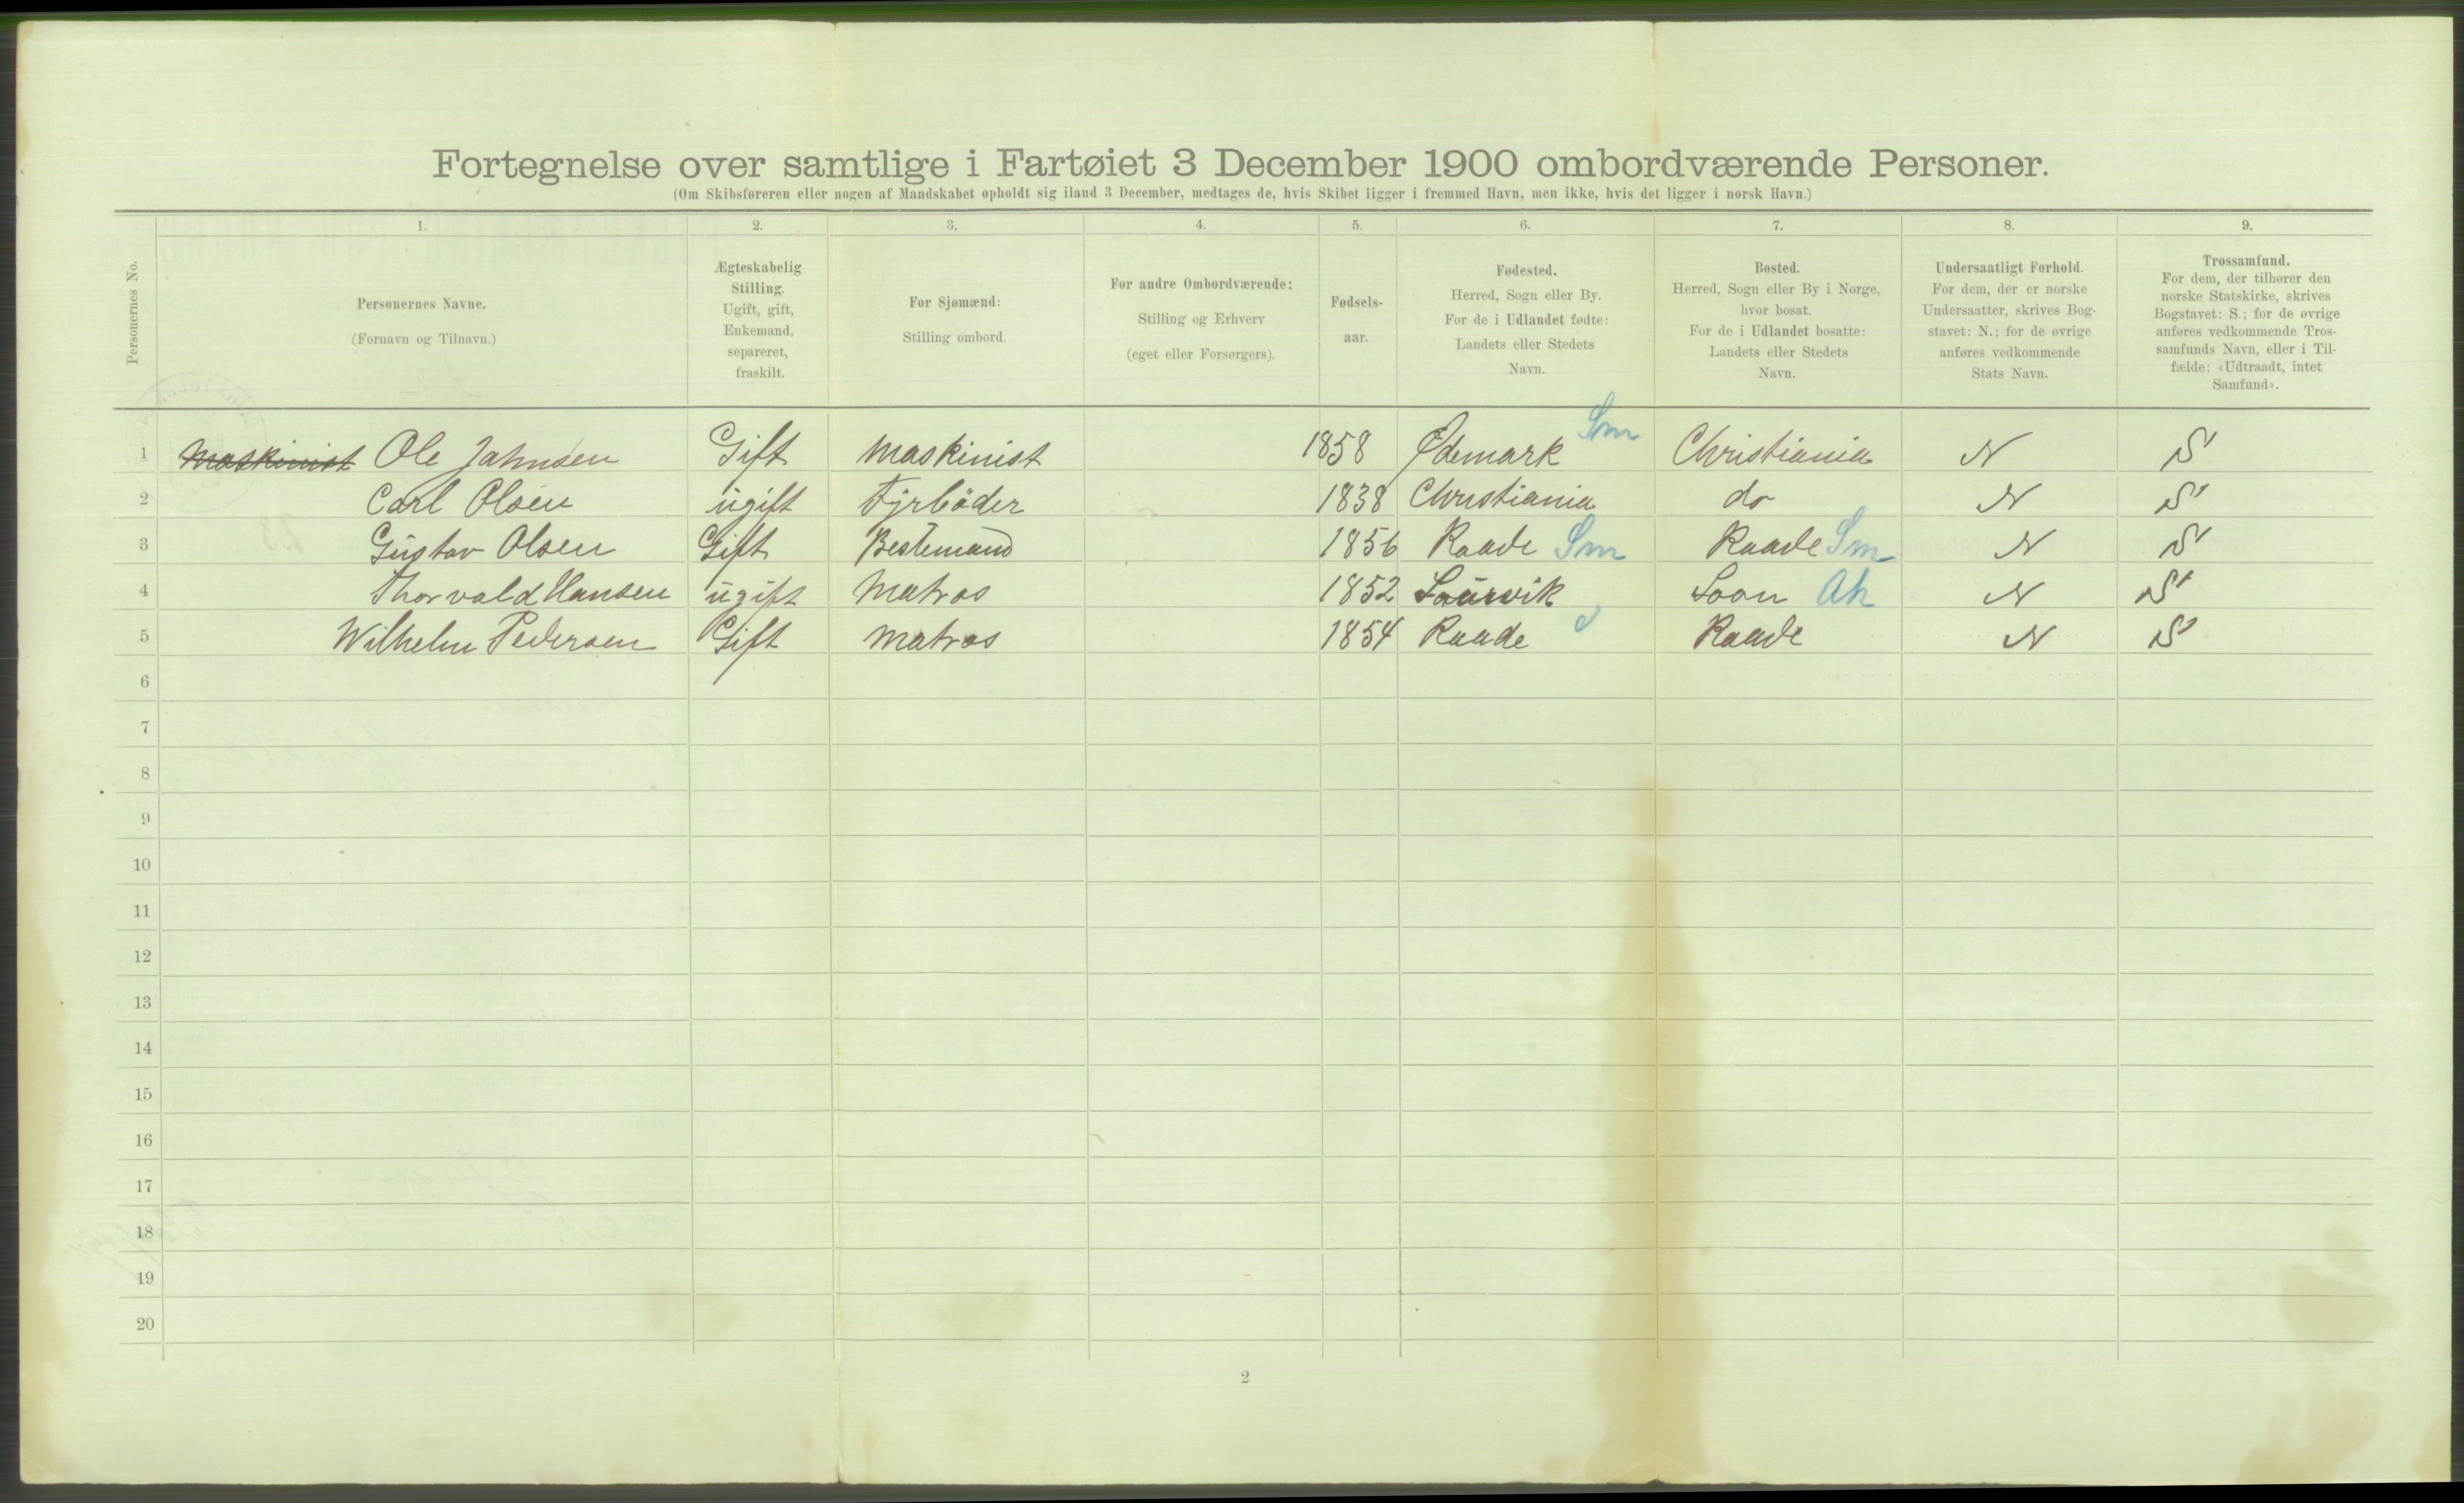 Fortegnelse over samtlige i Fartøiet 3 December 1900 ombordværende Personer.
(Om Skibsføreren eller nogen af Mandskabet opholdt sig iland 3 December, medtages de, hvis Skibet ligger i fremmed Havn, men ikke, hvis det ligger i norsk Havn.)
Personernes No.
1.
Personernes Navne.
(Fornavn og Tilnavn.)
2.
Ægteskabelig
Stilling.
Ugift, gift,
Enkemand,
separeret,
fraskilt.
3.
For Sjømænd:
Stilling ombord.
4.
For andre Ombordværende:
Stilling og Erhverv
(eget eller Forsørgers).
5.
Fødsels-
aar.
6.
Fødested.
Herred, Sogn eller By.
For de i Udlandet fødte:
Landets eller Stedets
Navn.
7.
Bosted.
Herred, Sogn eller By i Norge,
hvor bosat.
For de i Udlandet bosatte:
Landets eller Stedets
Navn.
8.
Undersaatligt Forhold.
For dem, der er norske
Undersaatter, skrives Bog-
stavet: N.; for de øvrige
anføres vedkommende
Stats Navn.
9.
Trossamfund.
For dem, der tilhører den
norske Statskirke, skrives
Bogstavet: S.; for de øvrige
anføres vedkommende Tros-
samfunds Navn, eller i Til-
fælde: «Udtraadt, intet
Samfund».
1 Maskinist Ole Jahnsen Gift Maskinist 1858 Ødemark Sm Christiania N S
2 Carl Olsen ugift Fyrböder 1838 Christiania do N S
3 Gustav Olsen Gift Bestemand 1856 Raade Sm Raade Sm N S
4 Thorvald Hansen ugift Matros 1852 Laurvik Soon Ak N S
5 Wilhelm Pedersen Gift Matros 1854 Raade Raade N S
6
7
8
9
10
11
12
13
14
15
16
17
18
19
20
2